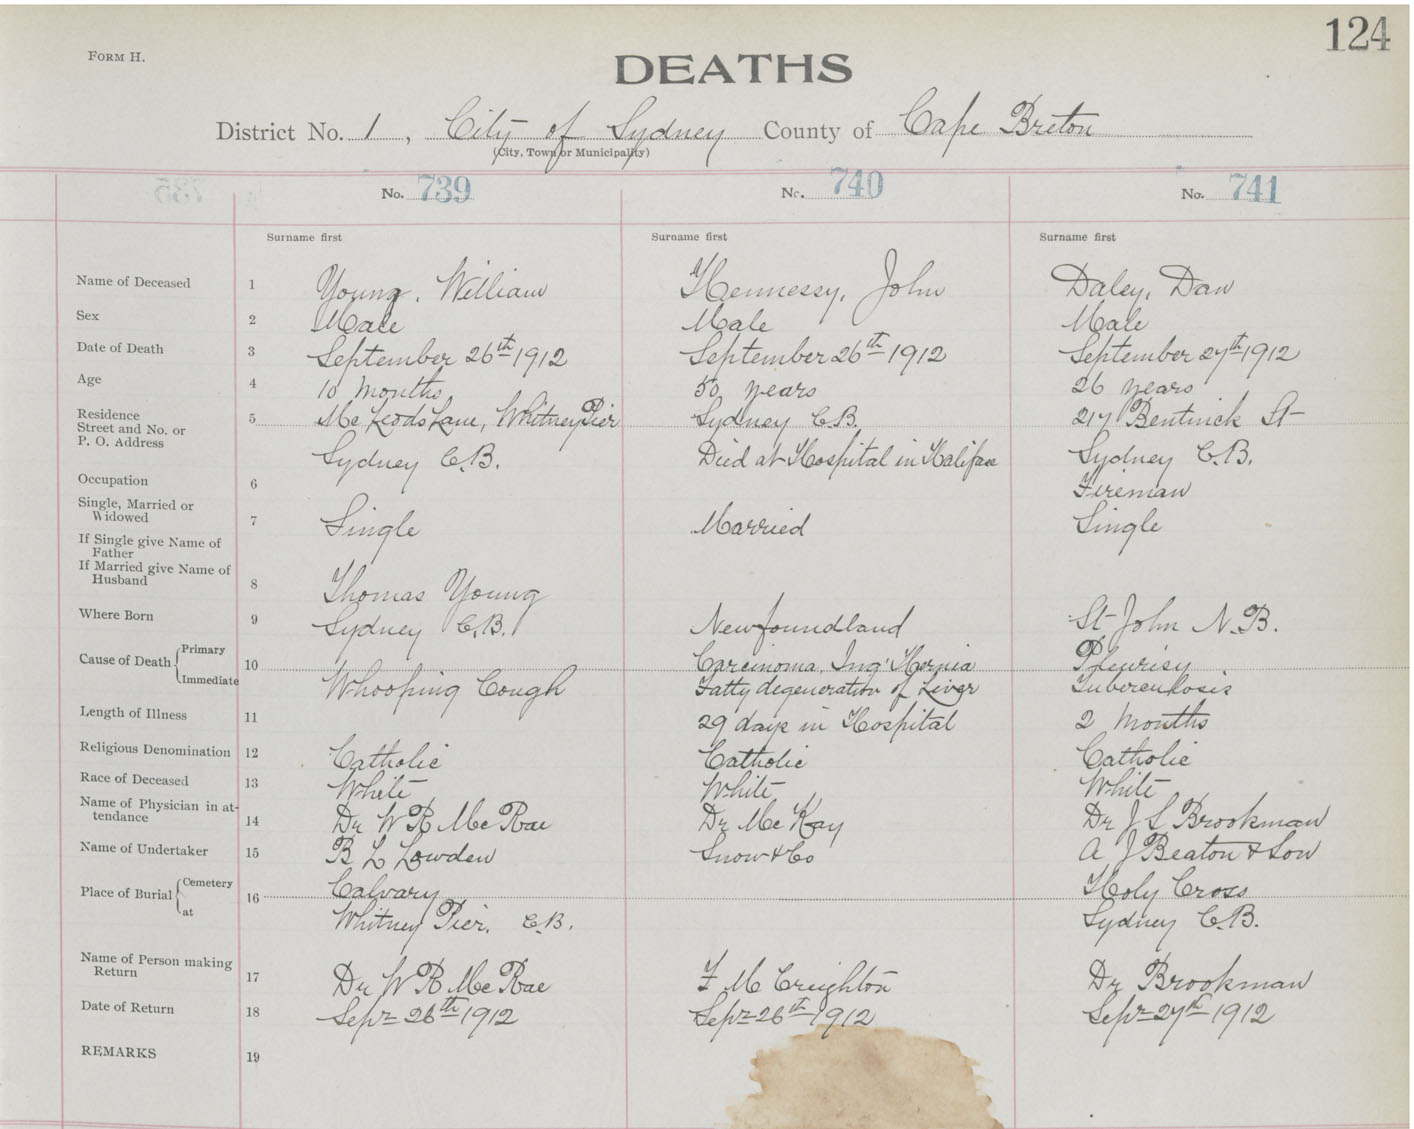 124
FORM H.
DEATHS
District No. 1, City of Sydney County of Cape Breton
(City, Town or Municipality)
No. 739 No. 740 No. 741
Surname first Surname first Surname first
Name of Deceased 1 Young, William Hennessy, John Daley, Dan
Sex 2 Male Male Male
Date of Death 3 September 26th 1912 September 26th 1912 September 27th 1912
Age 4 10 months 50 years 26 years
Residence
Street and No. or 5 Mc Leods Lane, Whitney Pier Sydney C.B. 217 Bentinck St
P. O. Address Sydney C.B. Died at Hospital in Halifax Sydney C.B.
Occupation 6 Fireman
Single, Married or
Widowed 7 Single Married Single
If Single give Name of
Father
If Married give Name of
Husband 8 Thomas Young
Where Born 9 Sydney C.B. Newfoundland St John N.B.
Cause of Death Primary 10 Carcinoma, Ing' Hernia Pleurisy
Immediate Whooping Cough Fatty degeneration of Liver Tuberculosis
Length of Illness 11 29 days in Hospital 2 months
Religious Denomination 12 Catholic Catholic Catholic
Race of Deceased 13 White White White
Name of Physician in at-
tendance 14 Dr W R Mc Rae Dr Mc Kay Dr J S Brookman
Name of Undertaker 15 B L Lowden Snow & Co A J Beaton & Son
Place of Burial Cemetery 16 Calvary Holy Cross
at Whitney Pier, C.B. Sydney C.B.
Name of Person making
Return 17 Dr W R Mc Rae F M Creighton Dr Brookman
Date of Return 18 Sept 26th 1912 Sept 26th 1912 Sept 27th 1912
REMARKS 19